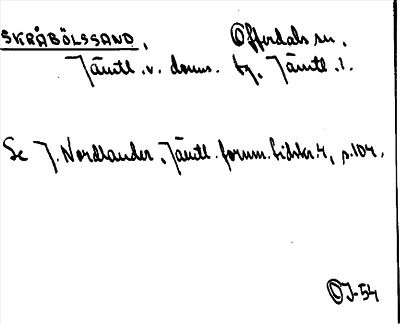 SKRÅBÖLSSAND, Offerdals sn,
Jämtl. v. doms. tg, Jämtl. l.
Se J. Nordlander, Jämtl. fornm. tidskr. 4, s. 104.
OJ-54